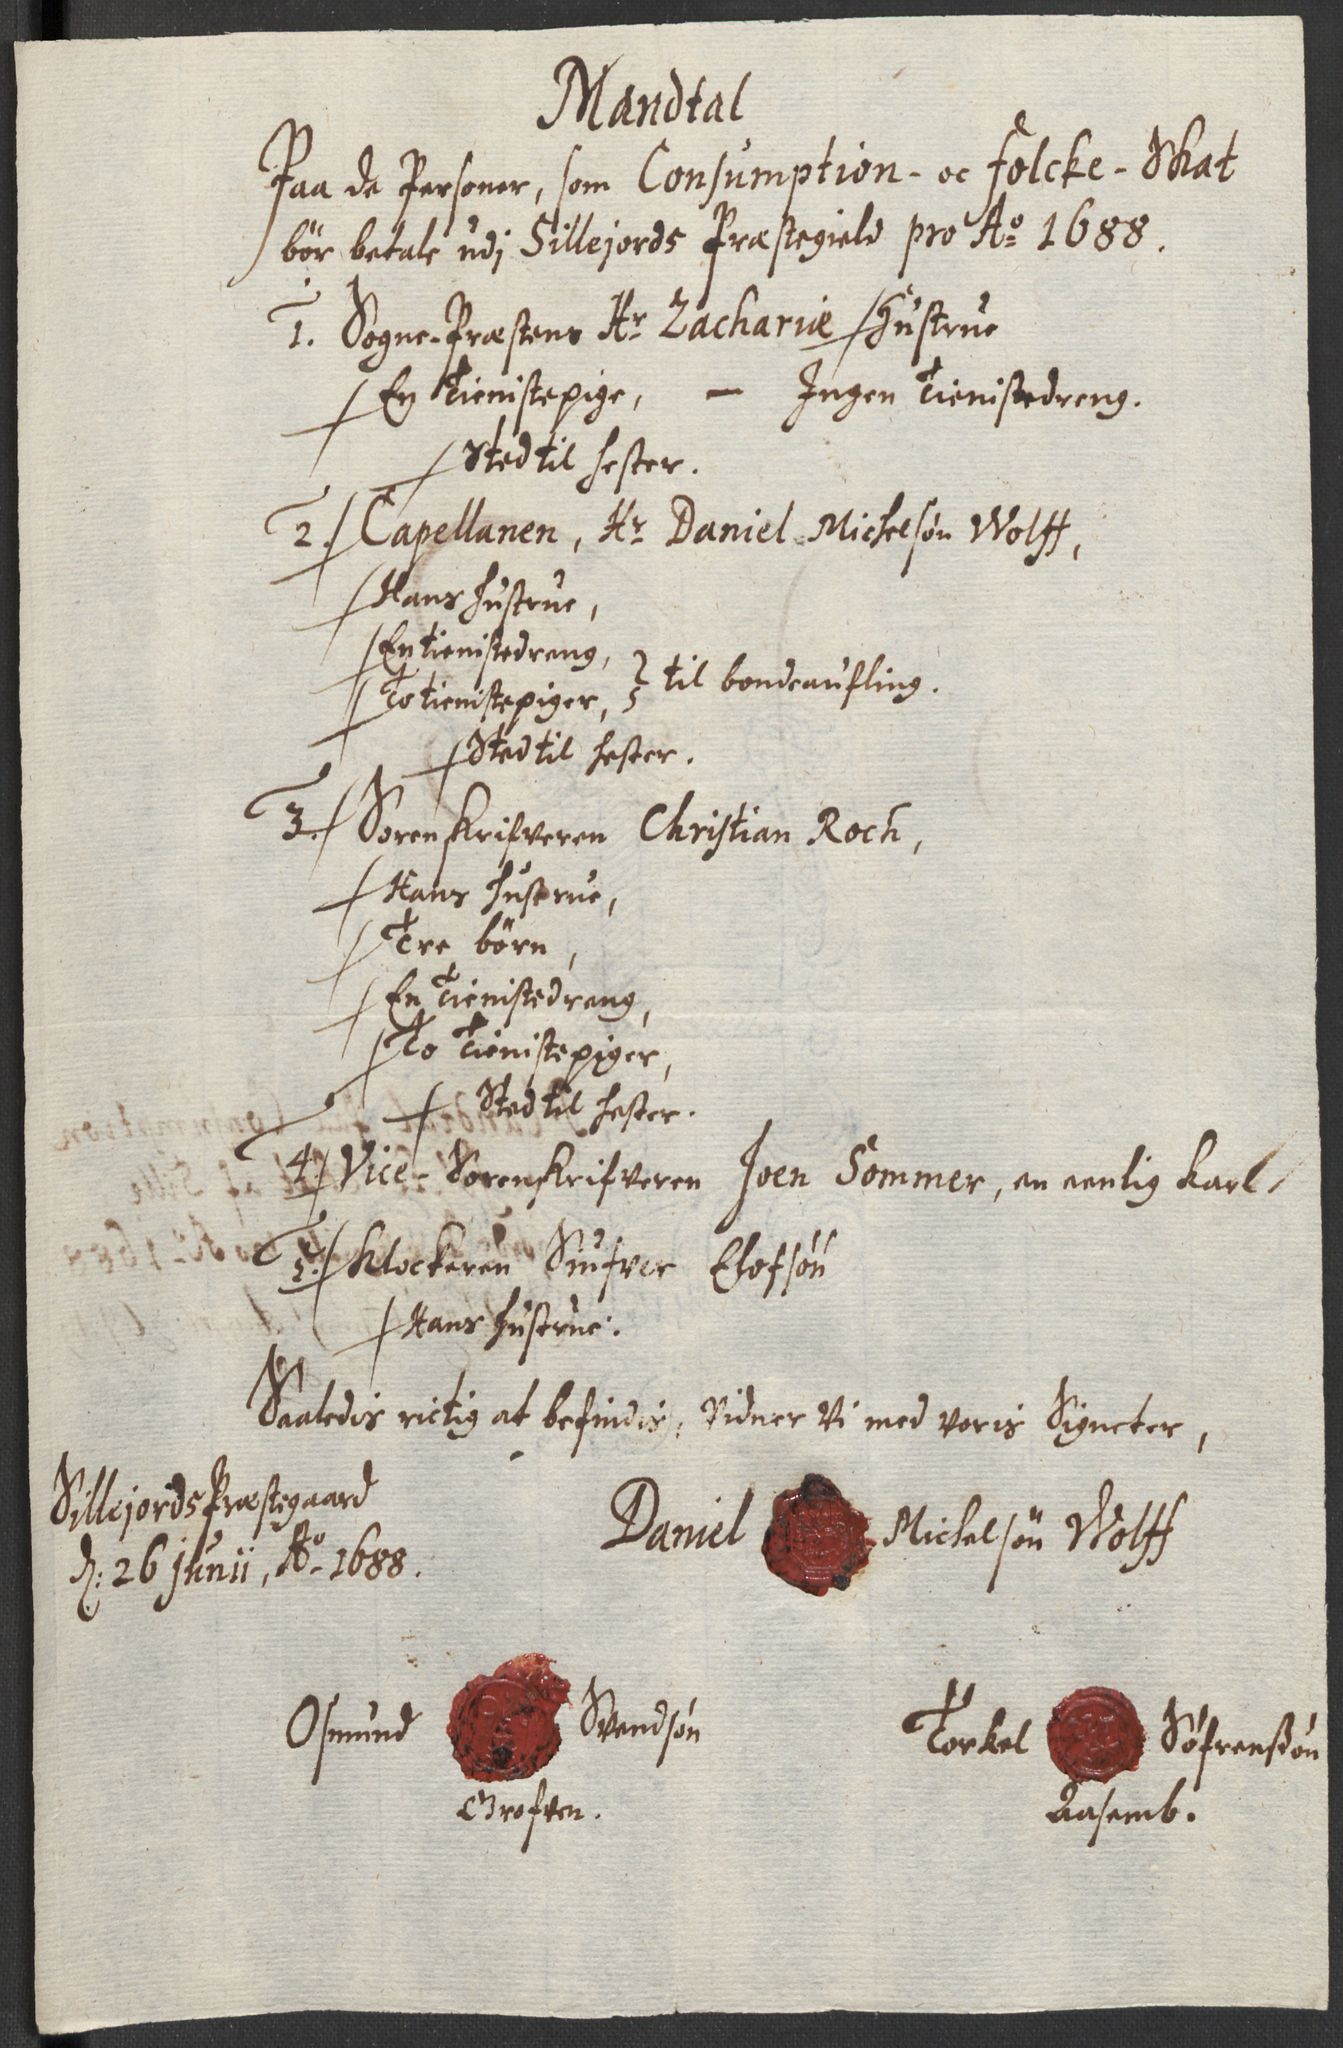 Mandtal
Paa de Personer, som Consumption- oc folcke-Skat
bör betale udj Sillejords Præstegield pro Ao 1688.
1. Sogne-Præstens Hr Zachariæ Hustrue
En Tienistepige, — Ingen Tienistedreng.
Sted til hester.
2. Capellanen, Hr Daniel Michelsøn Wolff,
Hans hustrue,
En tienistedreng,
To tienistepiger, til bondeaufling.
Sted til hester.
3. Sorenskrifveren Christian Roch,
Hans hustrue,
Tre börn,
En Tienistedreng,
To Tienistepiger,
Sted til hester.
4. Vice-Sorenskrifveren Joen Sommer, en eenlig karl
5. Klockeren Siufver Elofsøn
Hans hustrue.
Saaledis rictig at befindis, Vidner Vi med voris Signeter,
Sillejords Præstegaard
d: 26 Junii, Ao 1688.
Daniel Michelsøn Wolff
Osmund Svendsøn
Grofven.
Torkel Söfrensøn
Aasemb.